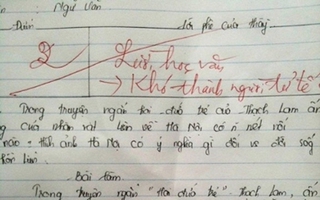 : Ngữ Văn
Điểm Lời phê của thầy
2 Lười học văn
→ Khó thành người tử tế
Trong truyện ngắn Hai đứa trẻ của Thạch Lam
của nhân vật Liên về Hà Nội có n nét nổi
nào? Hình ảnh Hà Nội có ý nghĩa gì đối vs đời sống
Liên.
Bài làm.
Trong truyện ngắn "Hai đứa trẻ" - Thạch Lam,